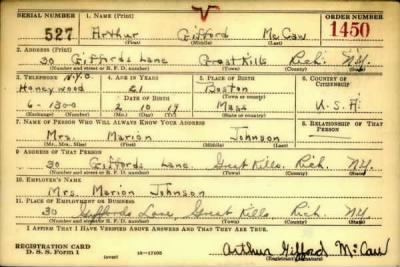 SERIAL NUMBER 1. NAME (Print) ORDER NUMBER
527 Arthur Gifford McCaw 1450
(First) (Middle) (Last)
2. ADDRESS (Print)
30 Giffords Lane Great Kills Rich. N.Y.
(Number and street or R. F. D. number) (Town) (County) (State)
3. TELEPHONE N.Y.C. 4. AGE IN YEARS 5. PLACE OF BIRTH 6. COUNTRY OF CITIZENSHIP
Honeywood 21 Boston
DATE OF BIRTH (Town or county)
6-1300 2 10 19 Mass U.S.A.
(Mo.) (Day) (Yr.) (State or country)
7. NAME OF PERSON WHO WILL ALWAYS KNOW YOUR ADDRESS 8. RELATIONSHIP OF THAT PERSON
Mrs. Marion Johnson
(Mr., Mrs., Miss) (First) (Middle) (Last)
9. ADDRESS OF THAT PERSON
30 Giffords Lane Great Kills Rich. N.Y.
(Number and street or R. F. D. number) (Town) (County) (State)
10. EMPLOYER'S NAME
Mrs. Marion Johnson
11. PLACE OF EMPLOYMENT OR BUSINESS
30 Giffords Lane Great Kills Rich. N.Y.
(Number and street or R. F. D. number) (Town) (County) (State)
I AFFIRM THAT I HAVE VERIFIED ABOVE ANSWERS AND THAT THEY ARE TRUE.
REGISTRATION CARD Arthur Gifford McCaw
D. S. S. Form 1 (over) (Registrant's signature)